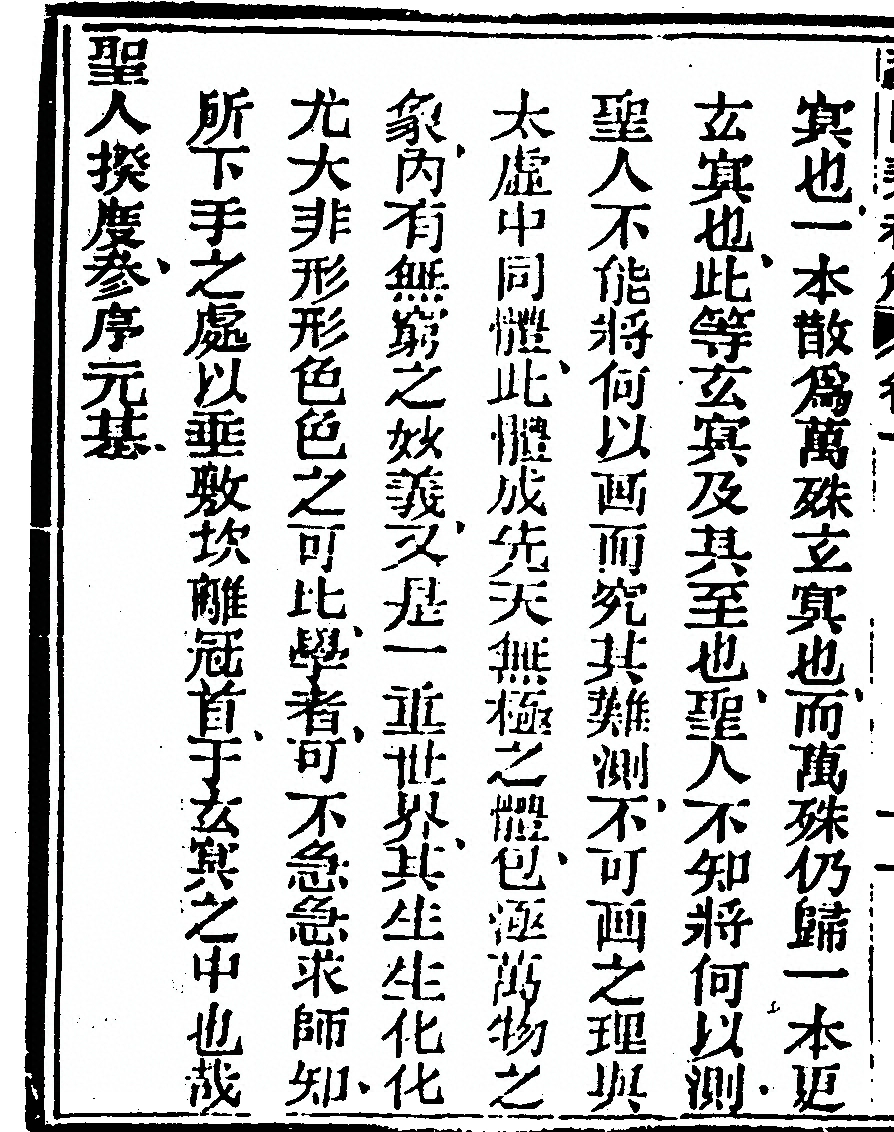 冥也一本散爲萬殊玄冥也而萬殊仍歸一本更
玄冥也此等玄冥及其至也聖人不知將何以測
聖人不能將何以画而究其難測不可画之理與
太虛中同體此體成先天無極之體包極萬物之
象內有無窮之妙義又是一重世界其生生化化
尤大非形形色色之可比學者可不急急求師知
所下手之處以垂敷坎離冠首于玄冥之中也哉
聖人揆度參序元基